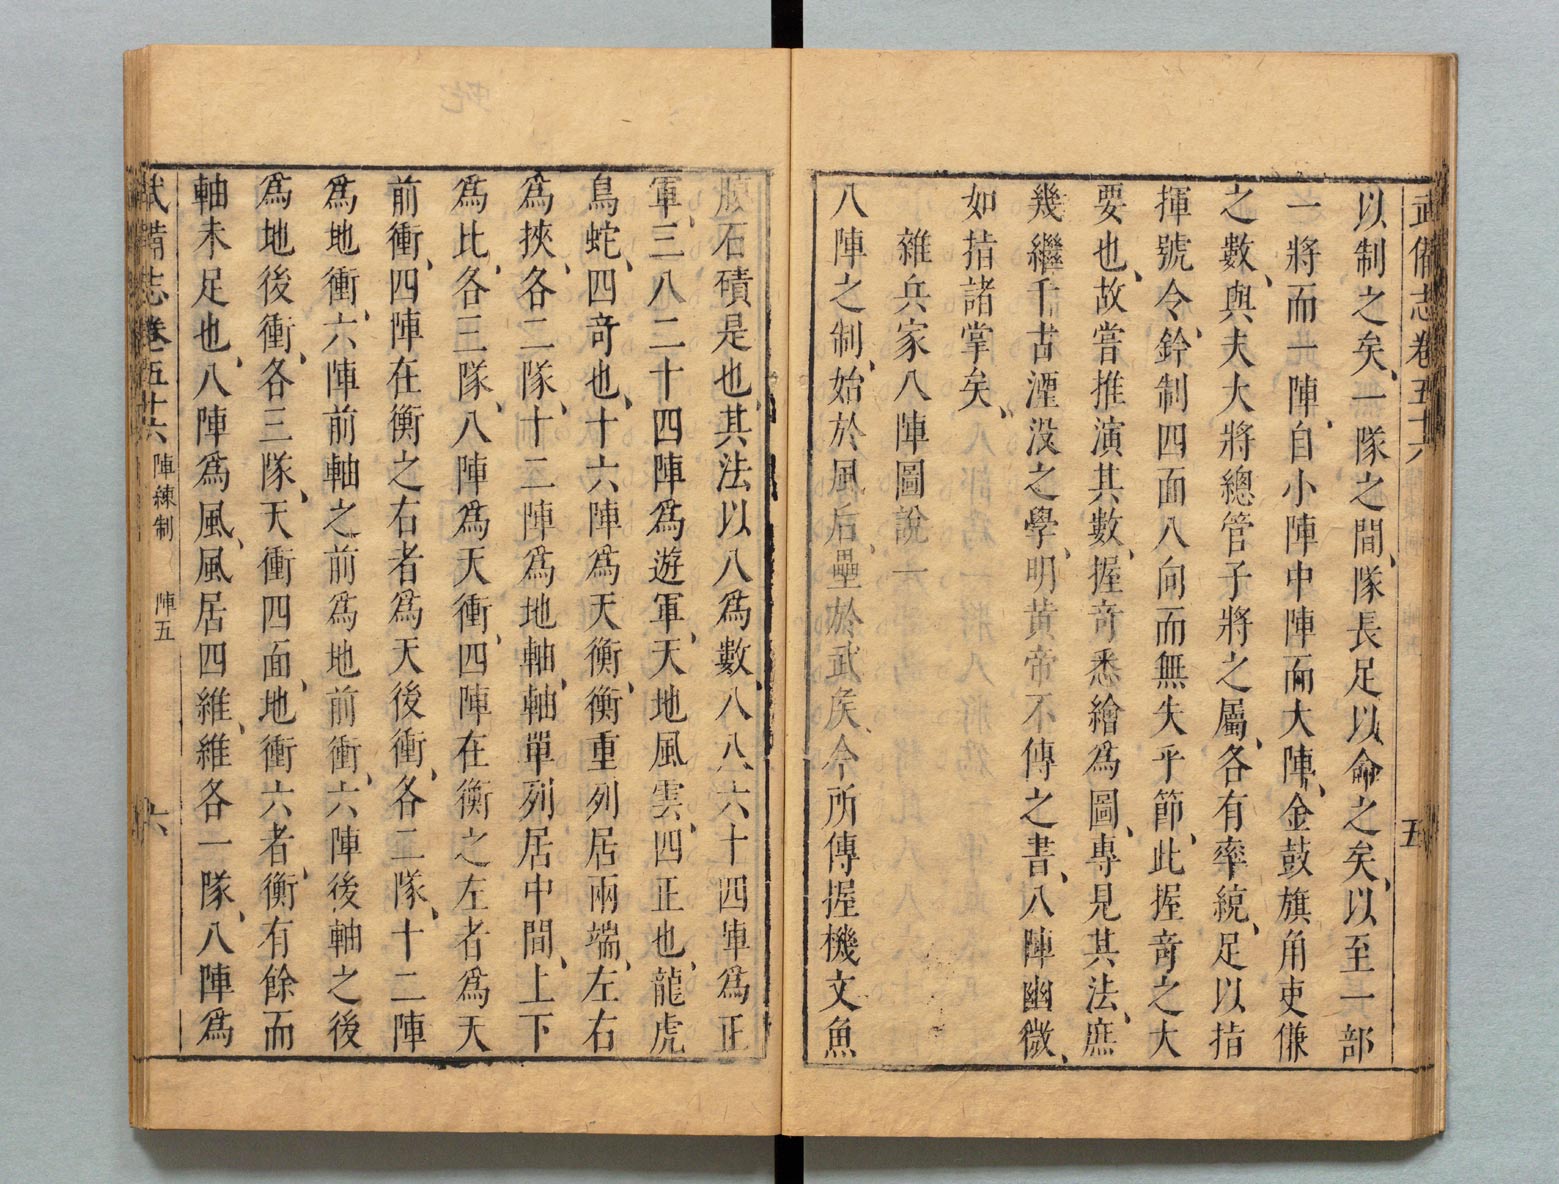 武備志卷五十六
五
以制之矣、一隊之間、隊長足以命之矣、以至一部
一將而一陣、自小陣中陣而大陣、金鼓旗角吏傔
之數、與夫大將總管子將之屬、各有率統、足以指
揮號令、鈐制四面八向而無失乎節、此握竒之大
要也、故嘗推演其數、握竒悉繪為圖、專見其法、庶
幾繼千古湮没之學、明黄帝不傳之書、八陣幽微、
如指諸掌矣、
雜兵家八陣圖說一
八陣之制、始於風后、壘於武矦、今所傳握機文魚
腹石磧是也、其法以八為數、八八六十四陣為正
軍、三八二十四陣為遊軍、天地風雲、四正也、龍虎
鳥蛇、四竒也、十六陣為天衡、衡重列居兩端、左右
為挾、各二隊、十二陣為地軸、軸單列居中間、上下
為比、各三隊、八陣為天衝、四陣在衡之左者為天
前衝、四陣在衡之右者為天後衝、各二隊、十二陣
為地衝、六陣前軸之前為地前衝、六陣後軸之後
為地後衝、各三隊、天衝四面、地衝六者、衡有餘而
軸未足也、八陣為風、風居四維、維各一隊、八陣為
武備志卷五十六 陣練制 陣五
六